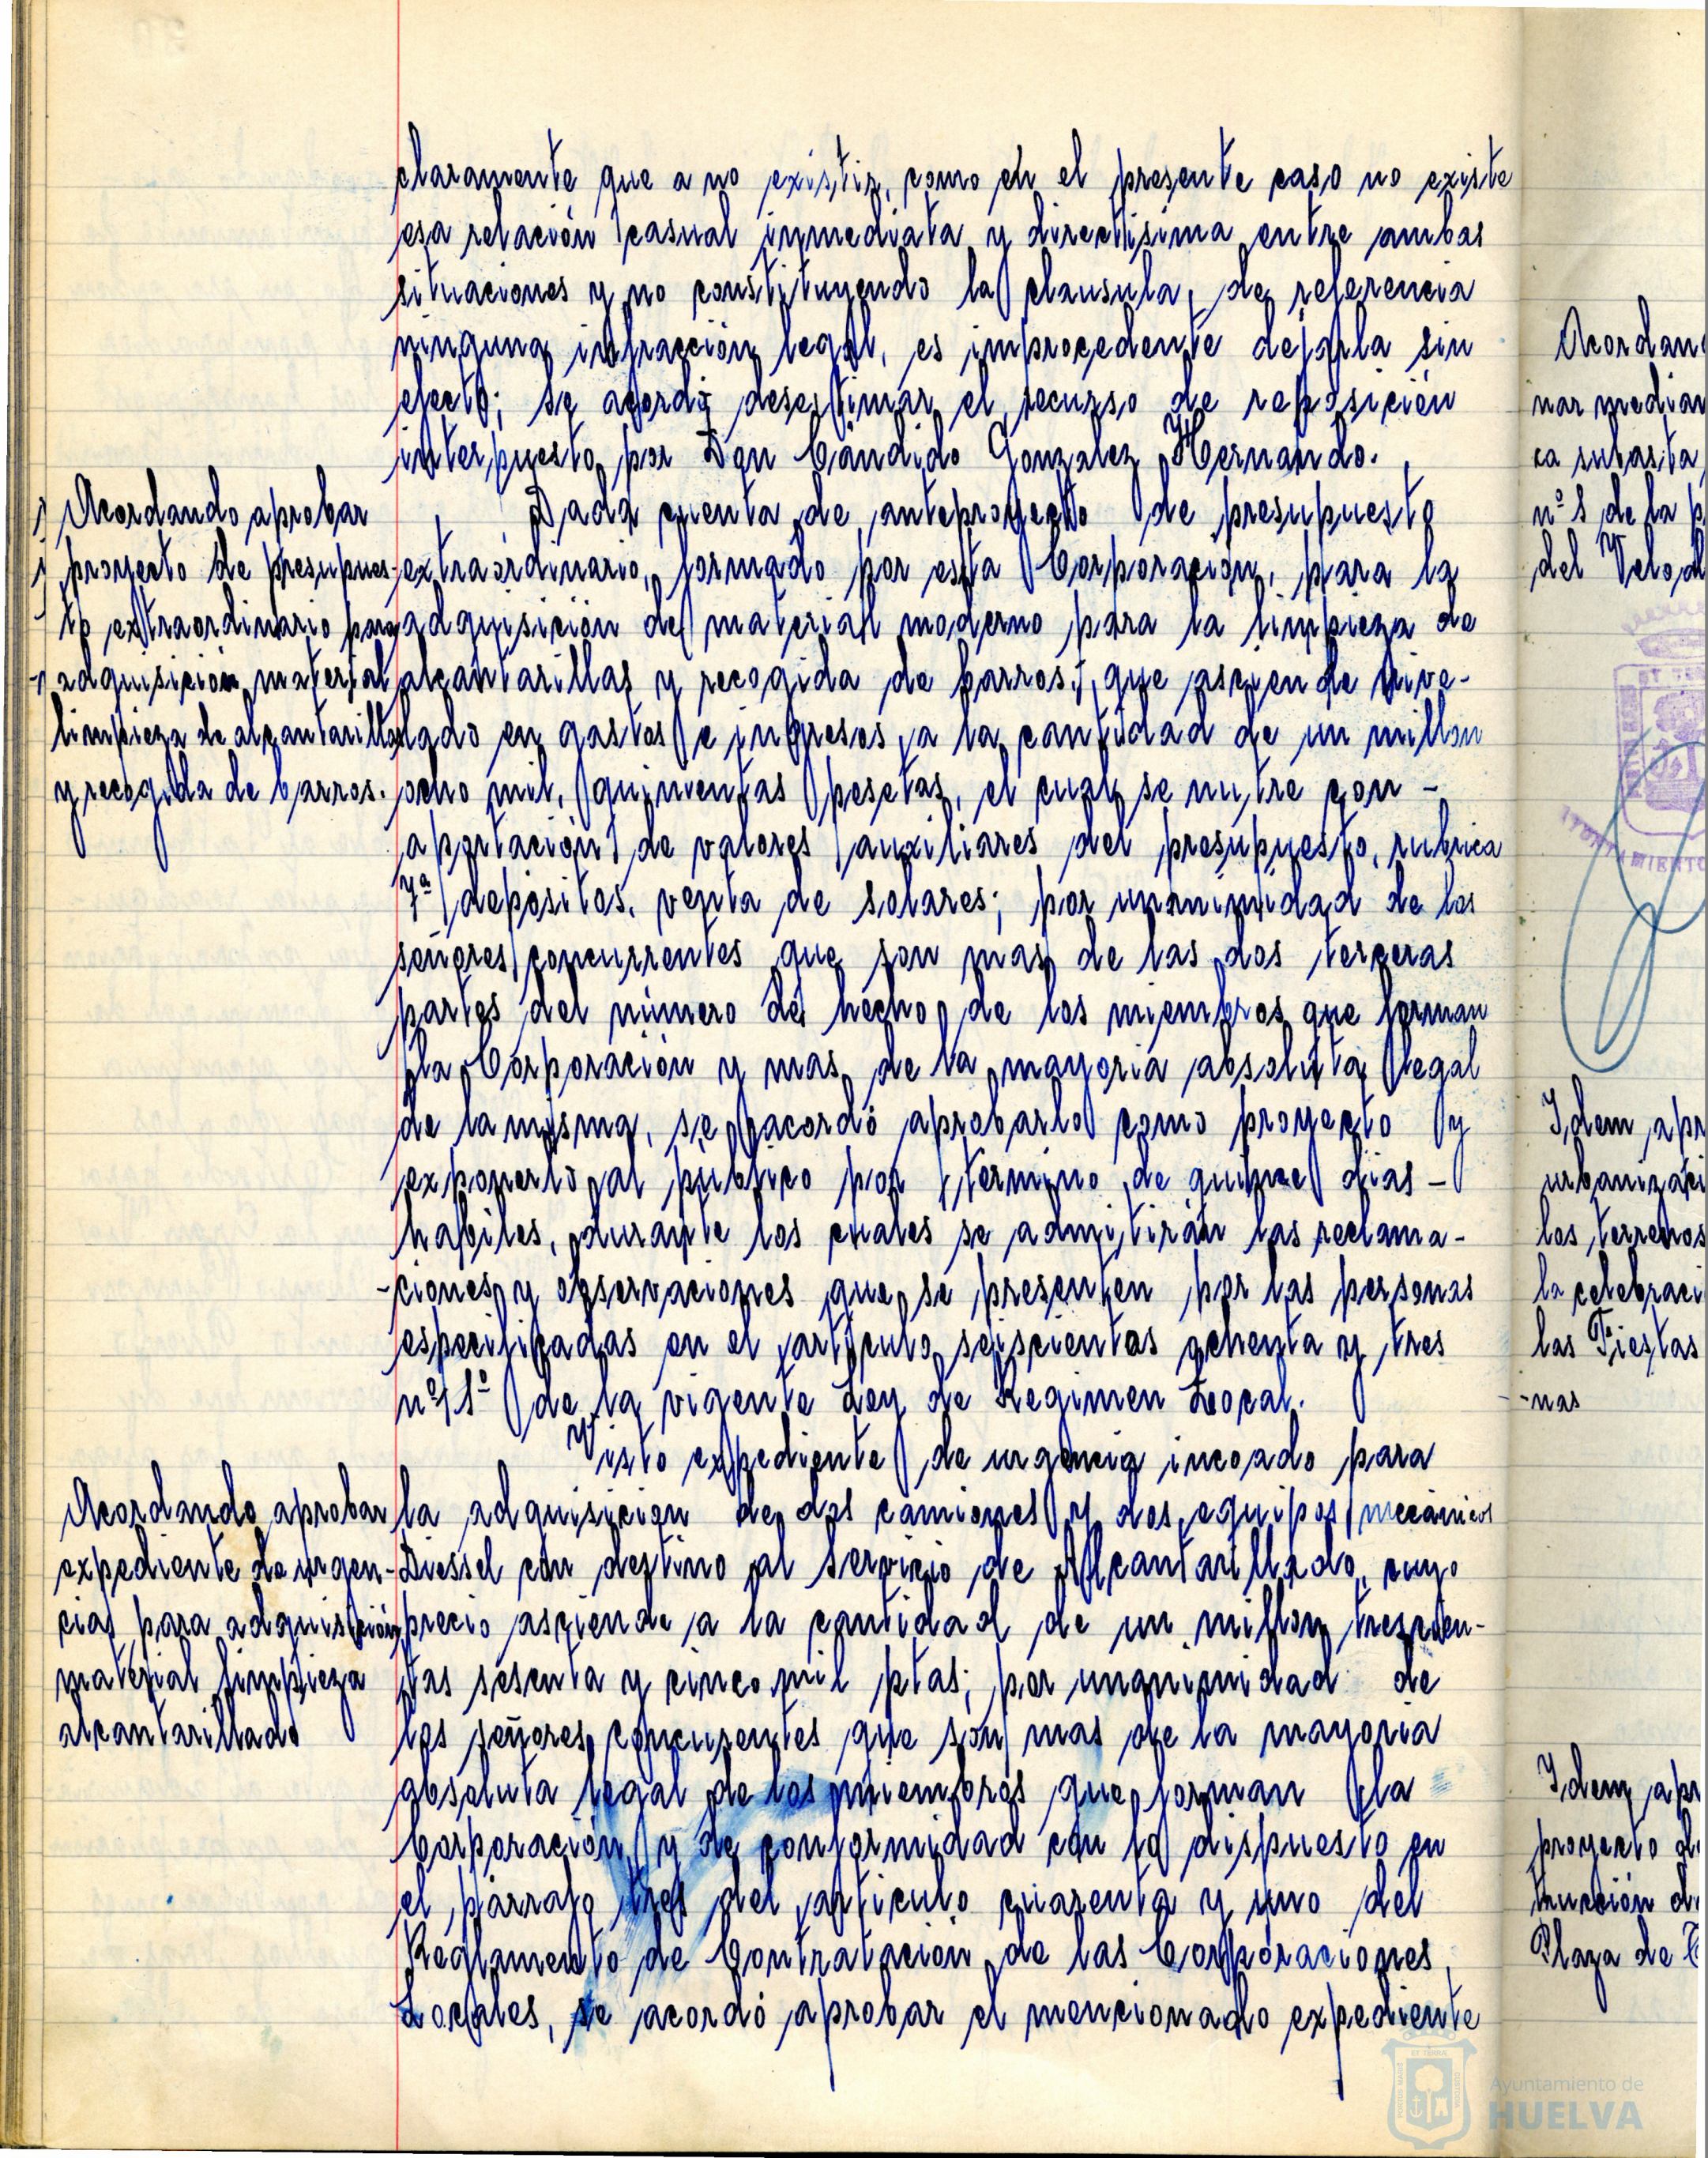 claramente que a no existir, como en el presente caso no existe
esa relación casual immediata y directisima entre ambas
situaciones y no constituyendo la clausula, de referencia
ninguna infracción legal, es improcedente dejarla sin
efecto; se acordó desestimar el recurso de reposición
interpuesto por Don Cándido Gonzalez Hernando.
Acordando aprobar
proyecto de presupues-
to extraordinario para
adquisición material
limpieza de alcantarilla
y recogida de barros.
Dada cuenta de anteproyecto de presupuesto
extraordinario, formado por esta Corporación, para la
adquisición de material moderno para la limpieza de
alcantarillas y recogida de barros, que asciende nive-
lado en gastos e ingresos a la cantidad de un millon
ocho mil, quinientas pesetas, el cual se nutre con -
aportación de valores auxiliares del presupuesto, rubrica
7ª depósitos, venta de solares; por unanimidad de los
señores concurrentes que son mas de las dos terceras
partes del número de hecho de los miembros que forman
la Corporación y mas de la mayoria absoluta legal
de la misma, se acordó aprobarlo como proyecto y
exponerlo al público por termino de quince dias -
habiles, durante los cuales se admitirán las reclama-
-ciones y observaciones que se presenten por las personas
especificadas en el articulo seiscientos ochenta y tres
nº 1º de la vigente Ley de Regimen Local.
Acordando aprobar
expediente de urgen-
cia para adquisición
material limpieza
alcantarillado
Visto expediente de urgencia incoado para
la adquisicion de dos camiones y dos equipos mecánicos
Diessel con destino al servicio de Alcantarillado, cuyo
precio asciende a la cantidad de un millon trescien-
tas sesenta y cinco mil ptas; por unanimidad de
los señores concurentes que son mas de la mayoria
absoluta legal de los miembros que forman la
Corporación y de conformidad con lo dispuesto en
el párrafo tres del articulo cuarenta y uno del
Reglamento de Contratación de las Corporaciones
Locales, se acordó aprobar el mencionado expediente
nar median
ca subasta
nº 8 de la p
del Velod
Idem apr
urbanizaci
los terrenos
la celebraci
las Fiestas
-nas
Idem apr
proyecto de
trucción de
Plaza de
Ayuntamiento de
HUELVA